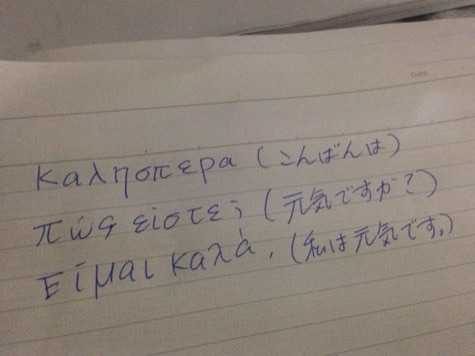 καλησπερα (こんばんは)
πώς είστε; (元気ですか?)
Είμαι καλά. (私は元気です。)